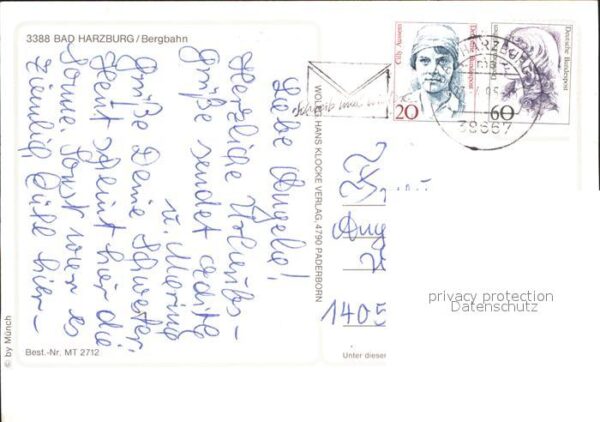 3388 BAD HARZBURG / Bergbahn
Liebe Angela!
Herzliche Urlaubs-
Grüße sendet
u.
Grüße Deine Schwester.
Heut scheint hier die
Sonne. Sonst war es
ziemlich kühl hier -
© by Münch
Best.-Nr. MT 2712
WOLFG. HANS KLOCKE VERLAG, 4790 PADERBORN
Cilly Aussem
Deutsche Bundespost
20
Deutsche Bundespost
60
HARZBURG
38667
Schreib mal
Ang
1405
Unter dieser
privacy protection
Datenschutz